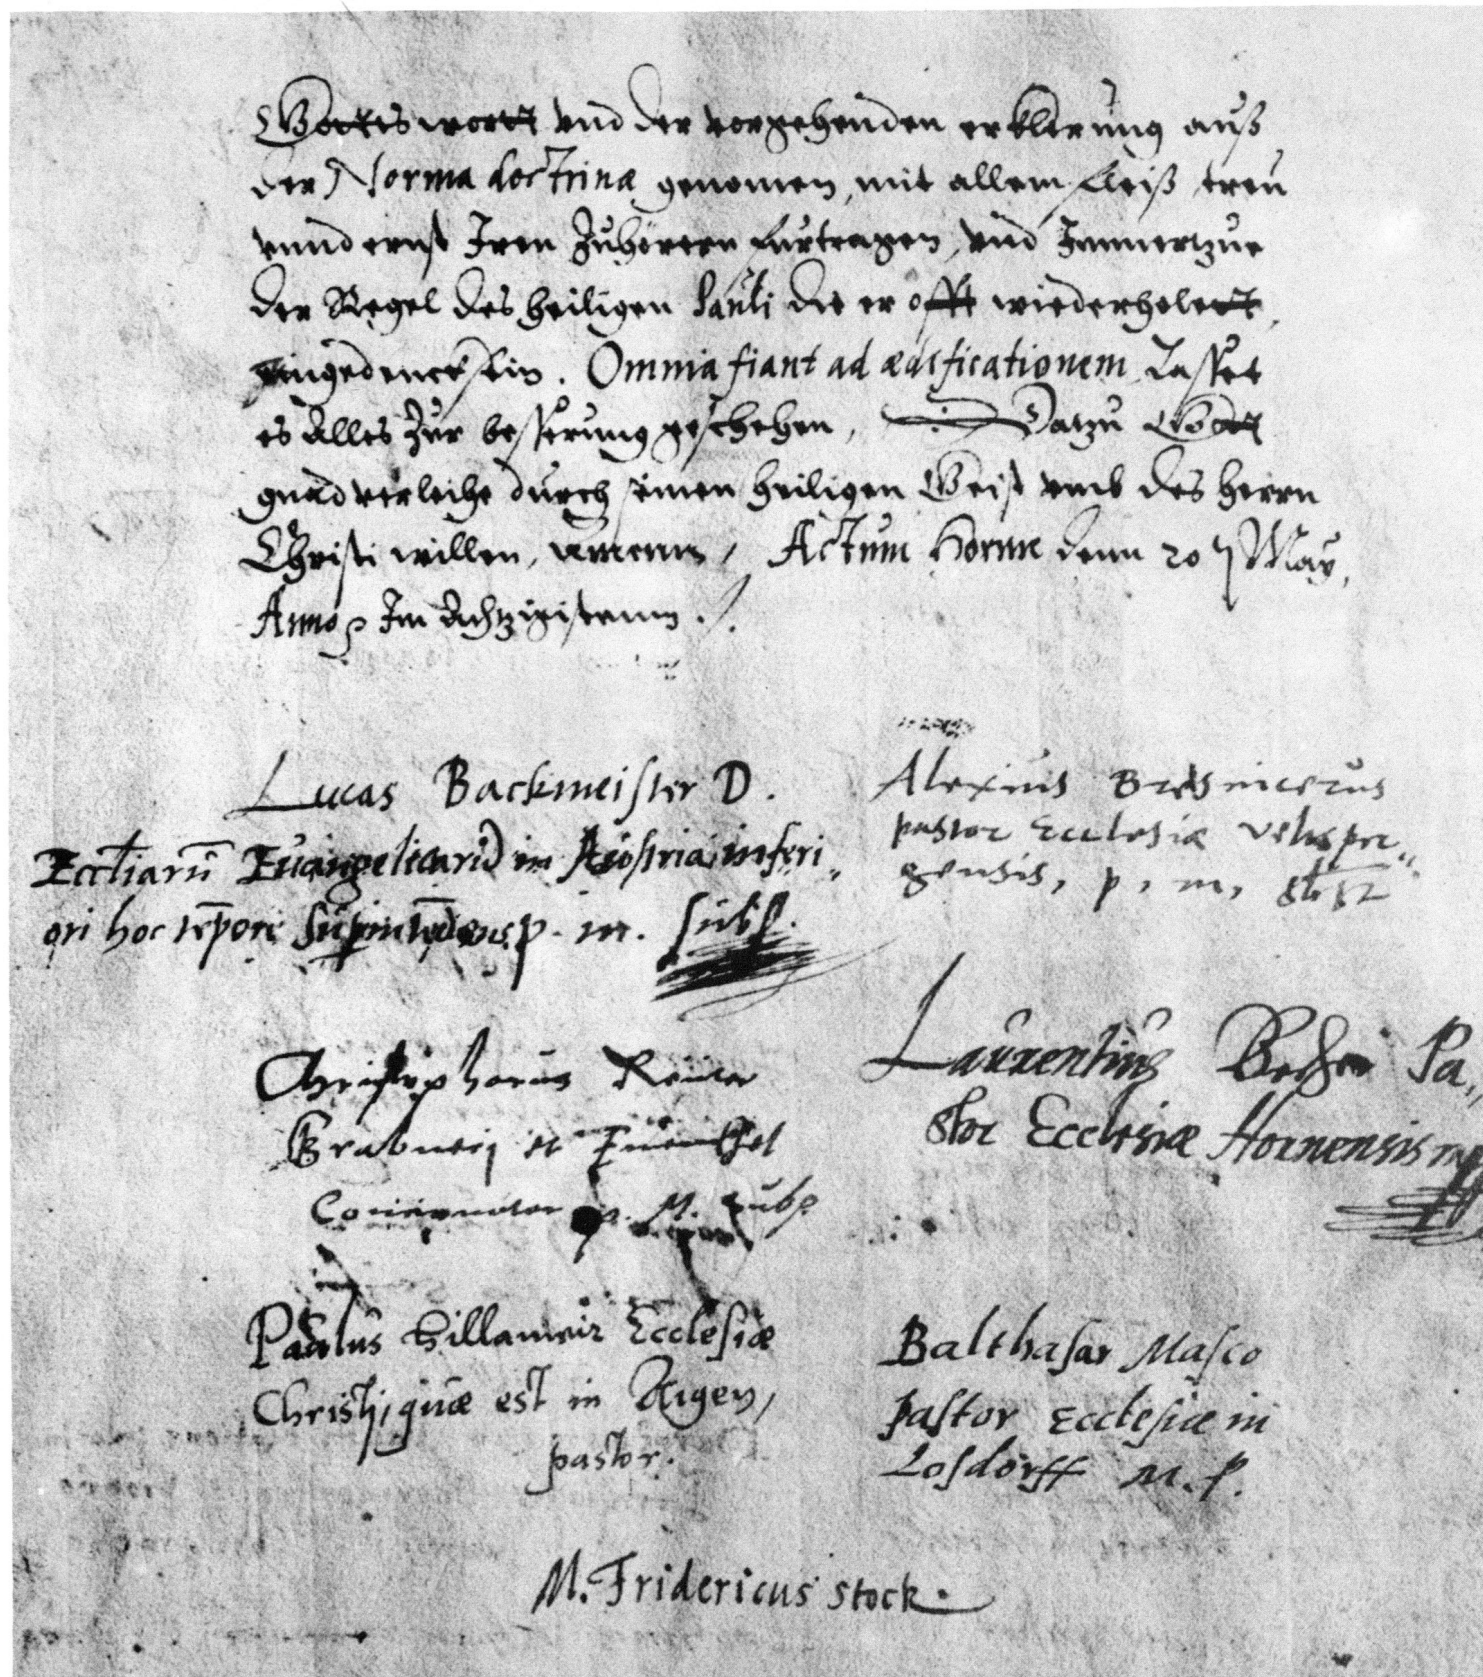 Gottes wortt vnd der vorgehenden erklerung auß
der Norma doctrinæ genomen, mit allem fleiß treu
vnnd ernst Iren Zuhörern furtragen, vnd Immertzue
der Regel des heiligen Pauli die er offt wiederholett,
eingedenck sein. Omnia fiant ad ædificationem Lasset
es alles Zur besserung geschehen, Datzu Gott
gnad verleihe durch seinen heiligen Geist vmb des herrn
Christi willen, Amenn, Actum Horn denn 20 May,
Anno Im Achtzigistenn ./.
Lucas Backmeister D.
Eccliarū Euangelicarū in Austria inferi„
ori hoc tēpore Supintēdens p. m. subs.
Alexius Bresnicerus
pastor Ecclesiæ Velsper„
gensis, p, m, sbs
Christophorus Reüter
Grabnerj et
Concionator p. M. subs.
Laurentius Becher Pa„
stor Ecclesiæ Hornensis mp
Paulus Hillameir Ecclesiæ
Christi, quæ est in Aigen,
pastor.
Balthasar Masco
pastor Ecclesiæ in
Losdorff M. P.
M. Fridericus Stock.